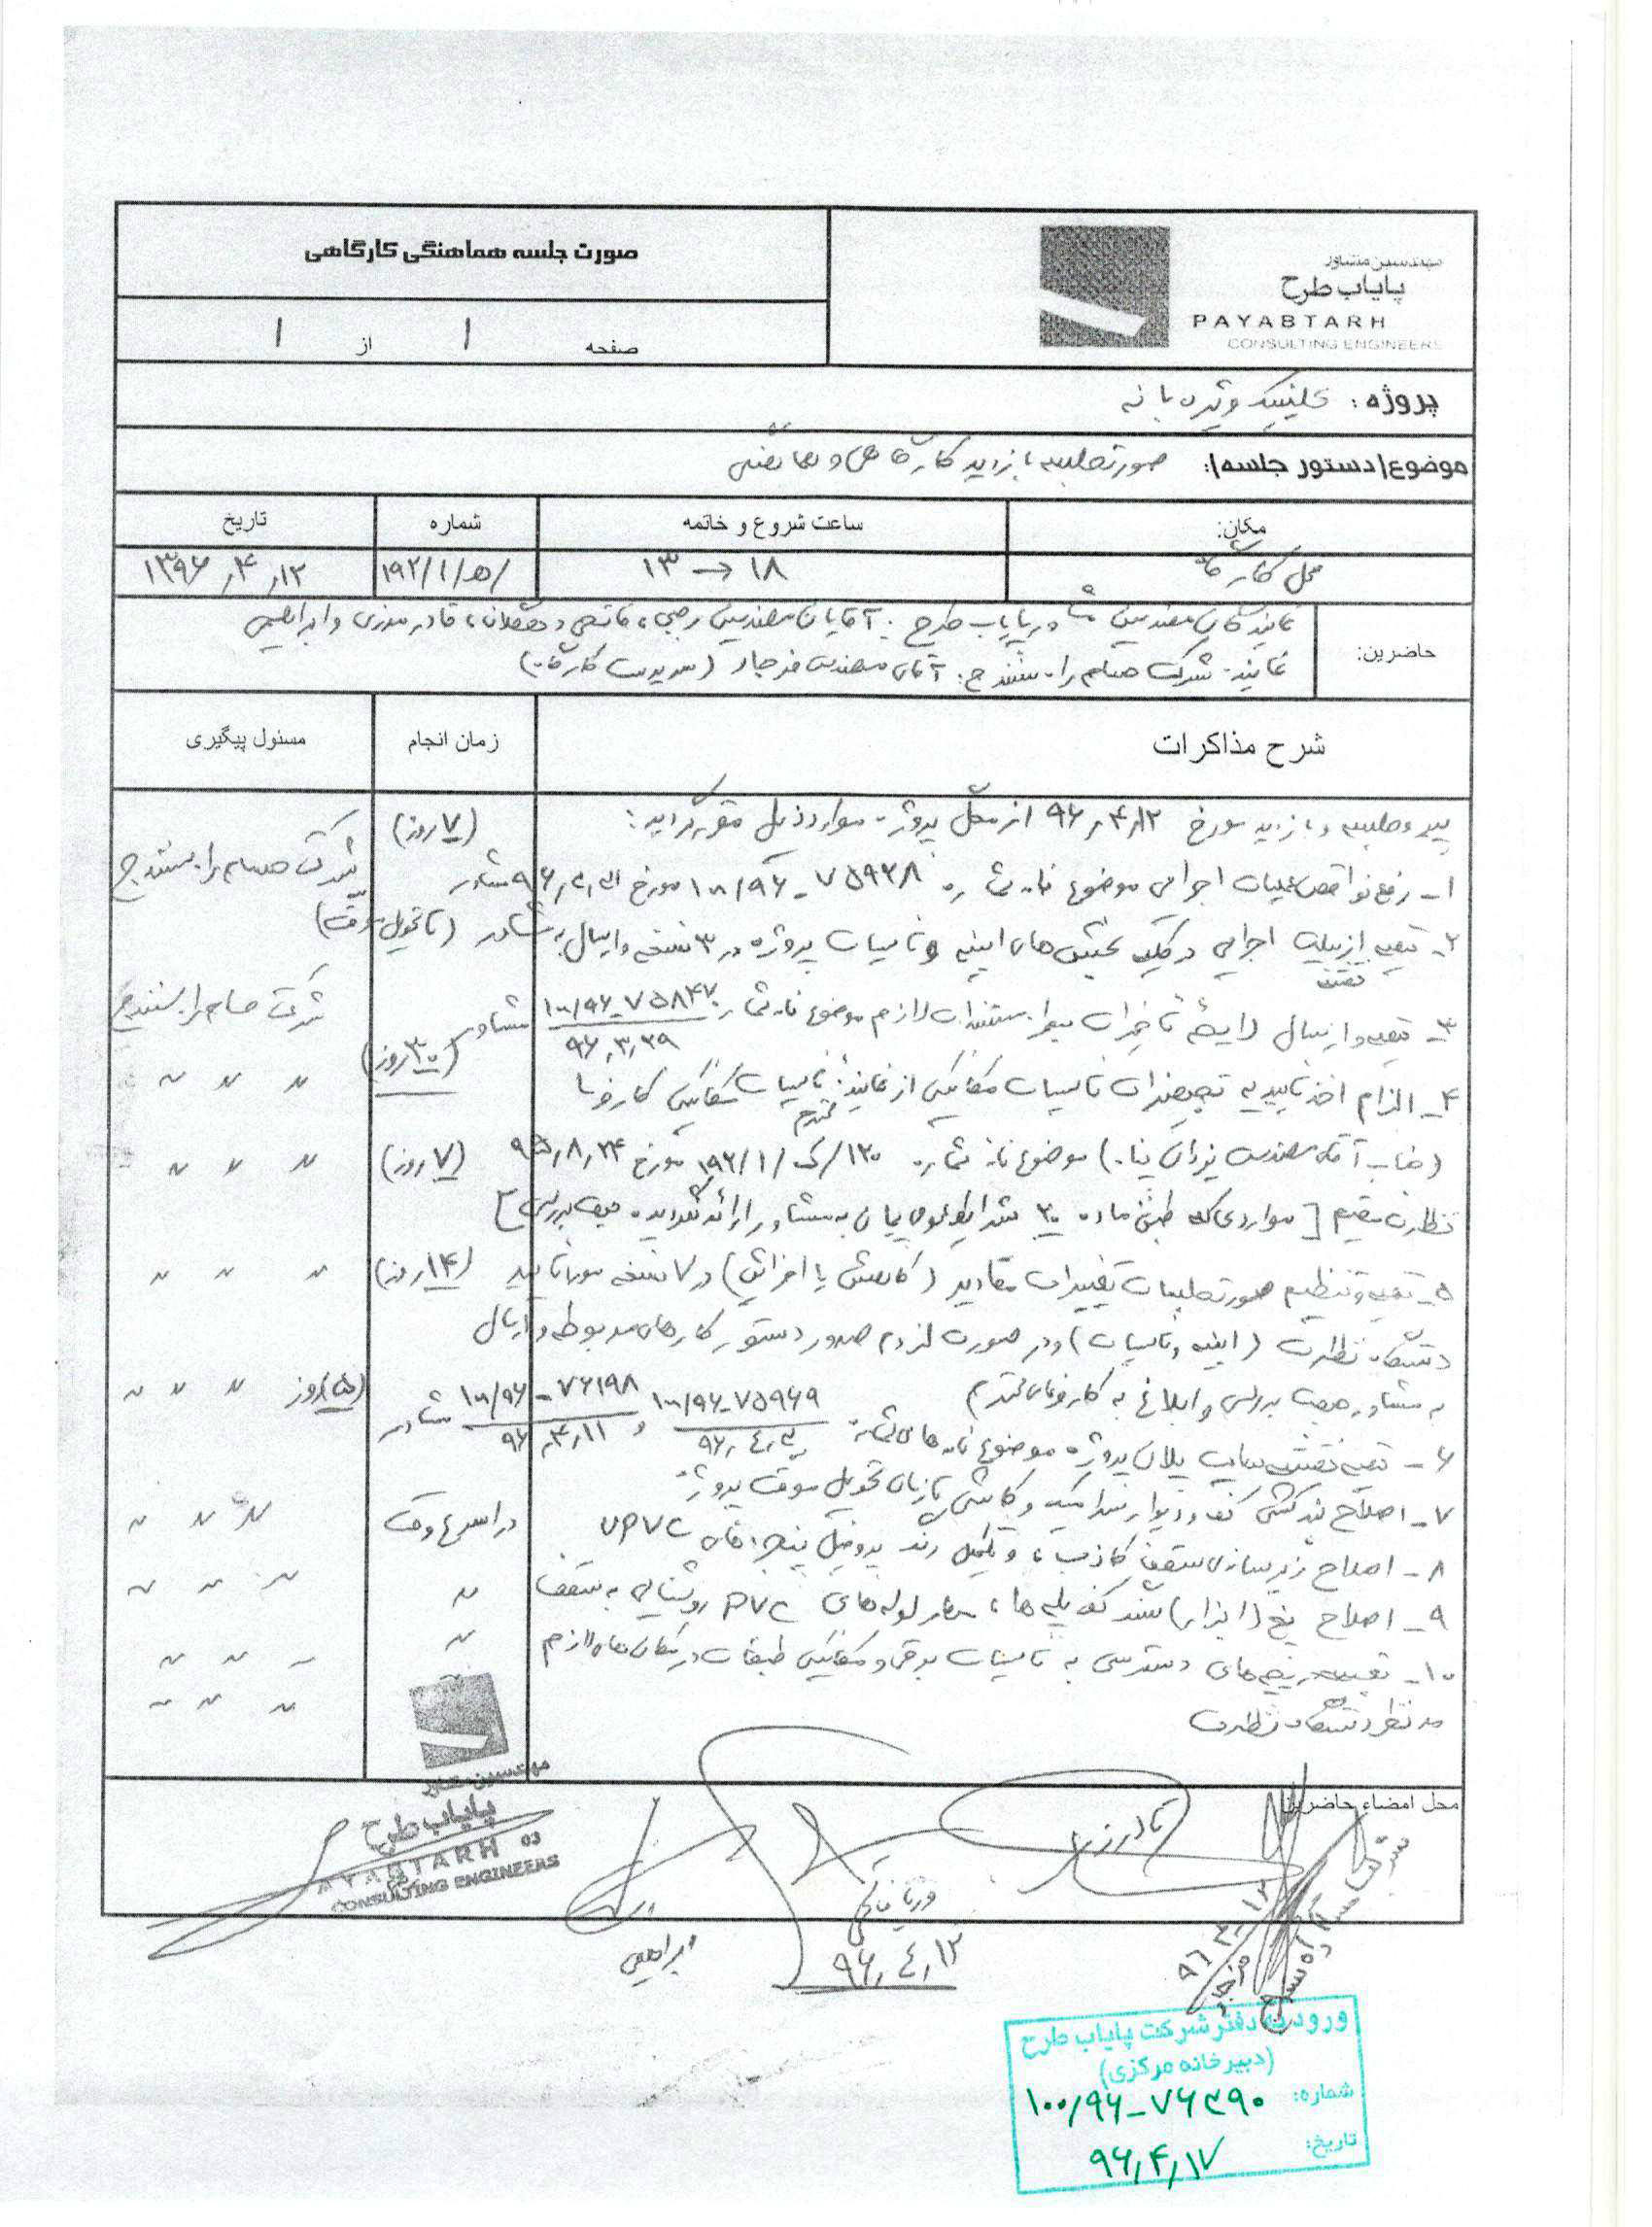 صورت جلسه هماهنگی کارگاهی
صفحه ۱ از ۱
مهندسین مشاور
پایاب طرح
PAYABTARH
CONSULTING ENGINEERS
پروژه: کلینیک ویژه بانه
موضوع/دستور جلسه/: صورتجلسه بازدید کارگاهی و نقائص
مکان: ساعت شروع و خاتمه شماره تاریخ
محل کارگاه ۱۸ → ۱۳ ۱۹۲/۱/ه/ ۱۳۹۶٫۴٫۱۲
حاضرین:
نمایندگان مهندسین مشاور پایاب طرح: آقایان مهندسین رجبی، فاتحی، دهقان، قادرمرزی و ابراهیمی
نماینده شرکت حسام راه سنندج: آقای مهندس فرجاد (مدیریت کارگاه)
شرح مذاکرات زمان انجام مسئول پیگیری
پیرو جلسه و بازدید مورخ ۹۶٫۴٫۱۲ از محل پروژه موارد ذیل مقرر گردید:
۱- رفع نواقص عملیات اجرایی موضوع نامه شماره ۷۵۹۳۸-۱۰۰/۹۶ مورخ مشاور (۷ روز) شرکت حسام راه سنندج
۲- تهیه ازبیلت اجرایی در کلیه بخش های ابنیه و تاسیسات پروژه در ۳ نسخه و ارسال به مشاور (تا تحویل موقت)
نقشه
۳- تهیه و ارسال لایحه تاخیرات بهمراه مستندات لازم موضوع نامه شماره ۷۵۸۴۷-۱۰۰/۹۶ مشاور شرکت حسام راه سنندج
۹۶٫۳٫۲۹ (۳۰ روز)
۴- الزام اخذ تاییدیه تجهیزات تاسیسات مکانیکی از نماینده تاسیسات مکانیکی کارفرما 〃 〃 〃
محترم
(جناب آقای مهندس یزدان پناه) موضوع نامه شماره ۱۹۲/۱/ک/۱۳۰ مورخ ۹۵٫۸٫۲۴ (۷ روز) 〃 〃 〃
نظارت مقیم [مواردی که طبق ماده ۳۰ شرایط عمومی پیمان به مشاور ارائه نگردیده جهت بررسی]
۵- تهیه و تنظیم صورتجلسات تغییرات مقادیر (کاهش یا افزایش) در ۷ نسخه مورد تایید (۱۴ روز) 〃 〃 〃
دستگاه نظارت (ابنیه و تاسیسات) و در صورت لزوم صدور دستور کارهای مربوطه و ارسال
به مشاور جهت بررسی و ابلاغ به کارفرمای محترم
۶- تهیه نقشه سایت پلان پروژه موضوع نامه های شماره ۷۵۹۶۹-۱۰۰/۹۶ و ۷۶۱۹۸-۱۰۰/۹۶ مشاور (۵) روز 〃 〃 〃
۹۶٫۴٫۱۱
۷- اصلاح بندکشی کف و دیوار سرامیک و کاشی تا زمان تحویل موقت پروژه
۸- اصلاح زیرسازی سقف کاذب، و تکمیل رند پروفیل پنجره های UPVC در اسرع وقت 〃 〃 〃
۹- اصلاح پخ (ابزار) سنگ کف پله ها، مهار لوله های PVC روشنایی به سقف 〃 〃 〃 〃
۱۰- تعبیه دریچه های دسترسی به تاسیسات برقی و مکانیکی طبقات در مکان های لازم 〃 〃 〃 〃
مد نظر دستگاه نظارت 〃 〃 〃
محل امضاء حاضرین
مهندسین مشاور
پایاب طرح
AYABTARH 03
CONSULTING ENGINEERS
ابراهیمی
فاتحی
۹۶٫۴٫۱۲
فرجاد
ورود به دفتر شرکت پایاب طرح
(دبیرخانه مرکزی)
شماره: ۱۰۰/۹۶-۷۶۳۹۰
تاریخ: ۹۶٫۴٫۱۷